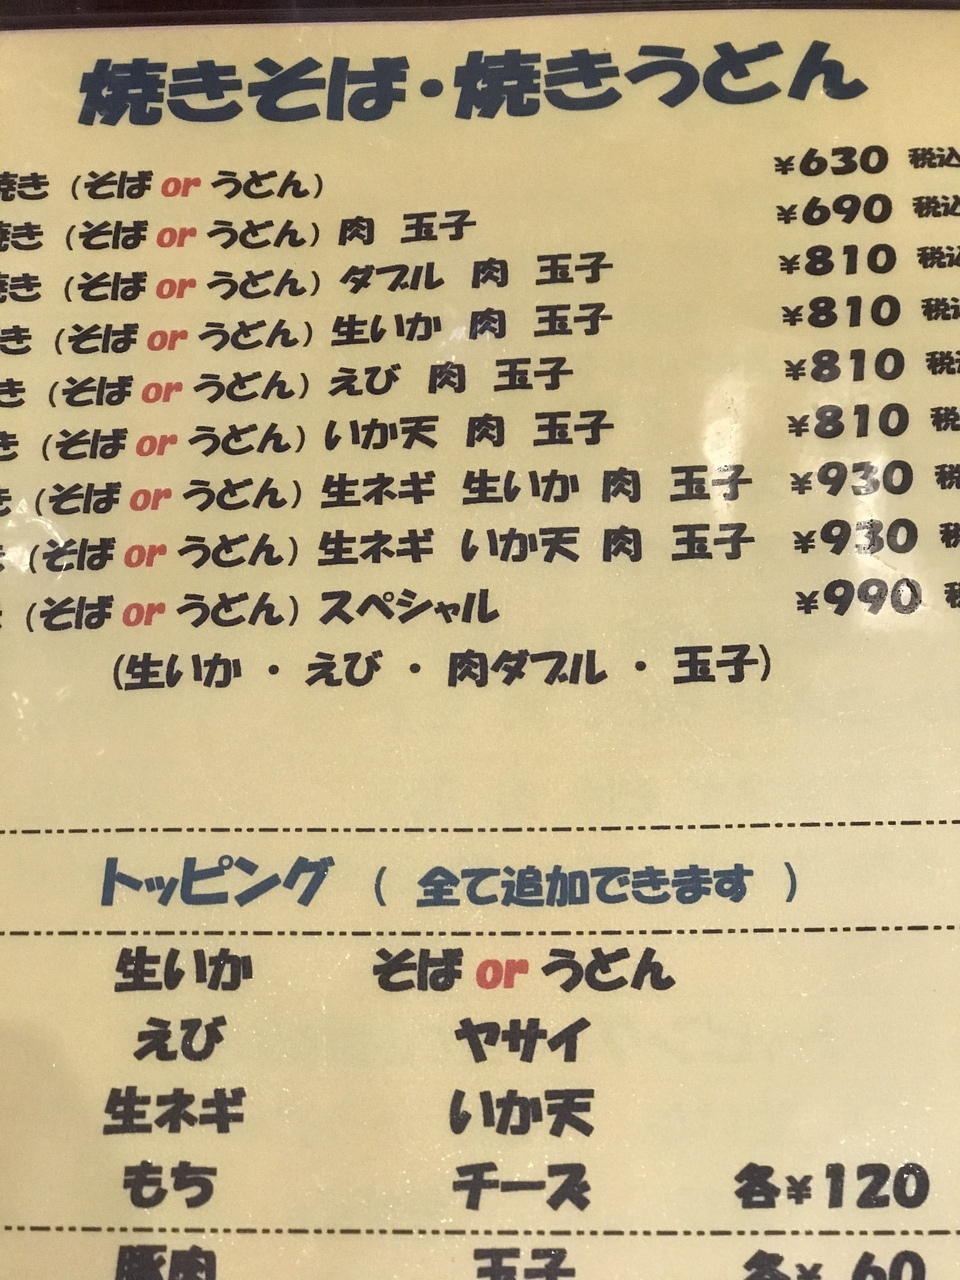 焼きそば・焼きうどん
焼き（そば or うどん） ¥630 税込
焼き（そば or うどん）肉 玉子 ¥690 税込
焼き（そば or うどん）ダブル 肉 玉子 ¥810 税込
き（そば or うどん）生いか 肉 玉子 ¥810 税込
き（そば or うどん）えび 肉 玉子 ¥810 税込
き（そば or うどん）いか天 肉 玉子 ¥810 税
き（そば or うどん）生ネギ 生いか 肉 玉子 ¥930 税
（そば or うどん）生ネギ いか天 肉 玉子 ¥930 税
（そば or うどん）スペシャル ¥990 税
（生いか ・ えび ・ 肉ダブル ・ 玉子）
トッピング（ 全て追加できます ）
生いか そば or うどん
えび ヤサイ
生ネギ いか天
もち チーズ 各¥120
豚肉 玉子 各¥60